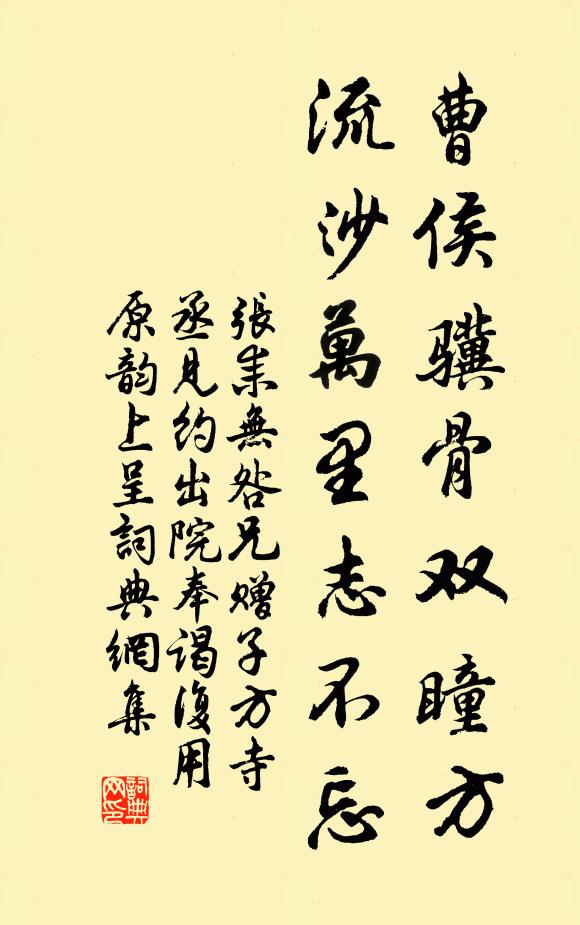 曹侯骥骨双瞳方
流沙萬里志不忘
張耒無咎兄赠子方寺
丞見約出院奉谒復用
原韵上呈詞典網集
詞典
网印